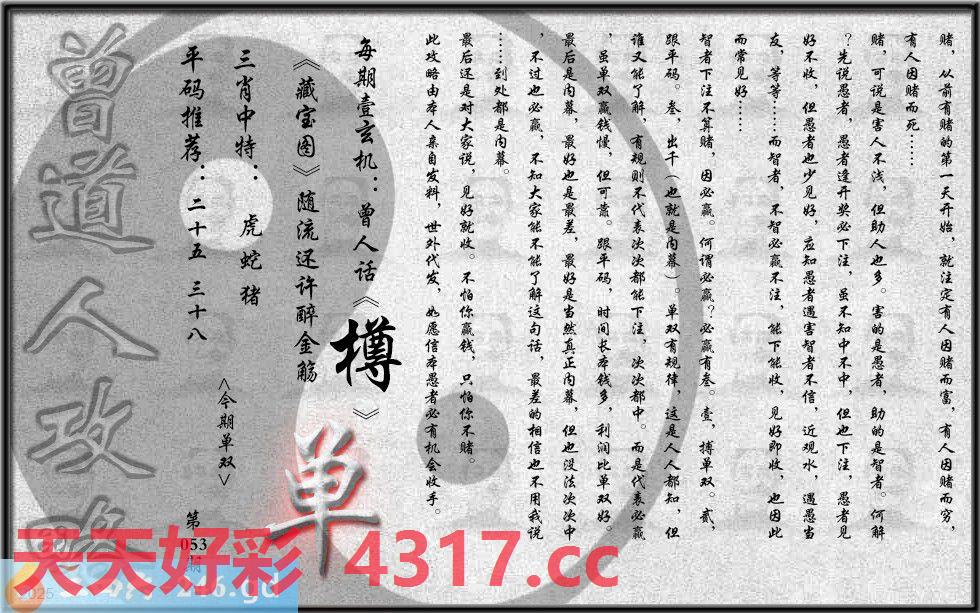 赌，从前有赌的第一天开始，就注定有人因赌而富，有人因赌而穷，
有人因赌而死……
赌，可说是害人不浅，但助人也多。害的是愚者，助的是智者。何解
？先说愚者，愚者逢开奖必下注，虽不知中不中，但也下注，愚者见
好不收，但愚者也少见好，应知愚者遇害智者不信，近观水，遇愚当
友，等等……而智者，不智必赢不注，能下能收，见好即收，也因此
而常见好……
智者下注不算赌，因必赢。何谓必赢？必赢有叁。壹，搏单双。贰，
跟平码。叁，出千（也就是内幕）。单双有规律，这是人人都知，但
谁又能了解，有规则不代表次次都能下注，次次都中。而是代表必赢
，虽单双赢钱慢，但可靠。跟平码，时间长本钱多，利润比单双好。
最后是内幕，最好也是最差，最好是当然真正内幕，但也没法次次中
，不过也必赢，不知大家能不能了解这句话，最差的相信也不用我说
……到处都是内幕。
最后还是对大家说，见好就收。不怕你赢钱，只怕你不赌。
此攻略由本人亲自发料，世外代发，如愿信本愚者必有机会收手。
每期壹玄机：曾人话《樽》
《藏宝图》随流还许醉金觞
三肖中特：虎蛇猪
平码推荐：二十五 三十八
<今期单双>
单
第
053
期
曾道人攻略
天天好彩 4317.cc
2025